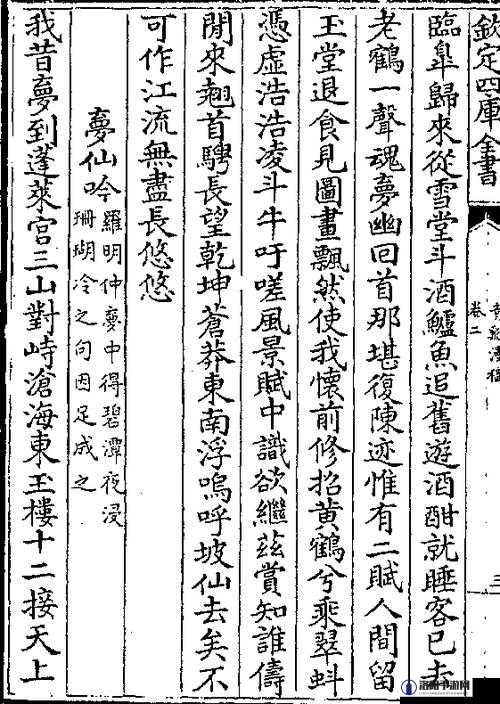 欽定四庫全書
卷二
三
臨臯歸來從雪堂斗酒鱸魚追舊遊酒酣就睡客已去
老鶴一聲魂夢幽回首那堪復陳迹惟有二賦人間留
玉堂退食見圖畫飄然使我懷前修招黄鶴兮乘翠虯
憑虛浩浩凌斗牛吁嗟風景賦中識欲繼兹賞知誰儔
閒來翹首騁長望乾坤蒼莽東南浮嗚呼坡仙去矣不
可作江流無盡長悠悠
夢仙吟
羅明仲夢中得碧潭夜浸
珊瑚冷之句因足成之
我昔夢到蓬萊宫三山對峙滄海東玉樓十二接天上